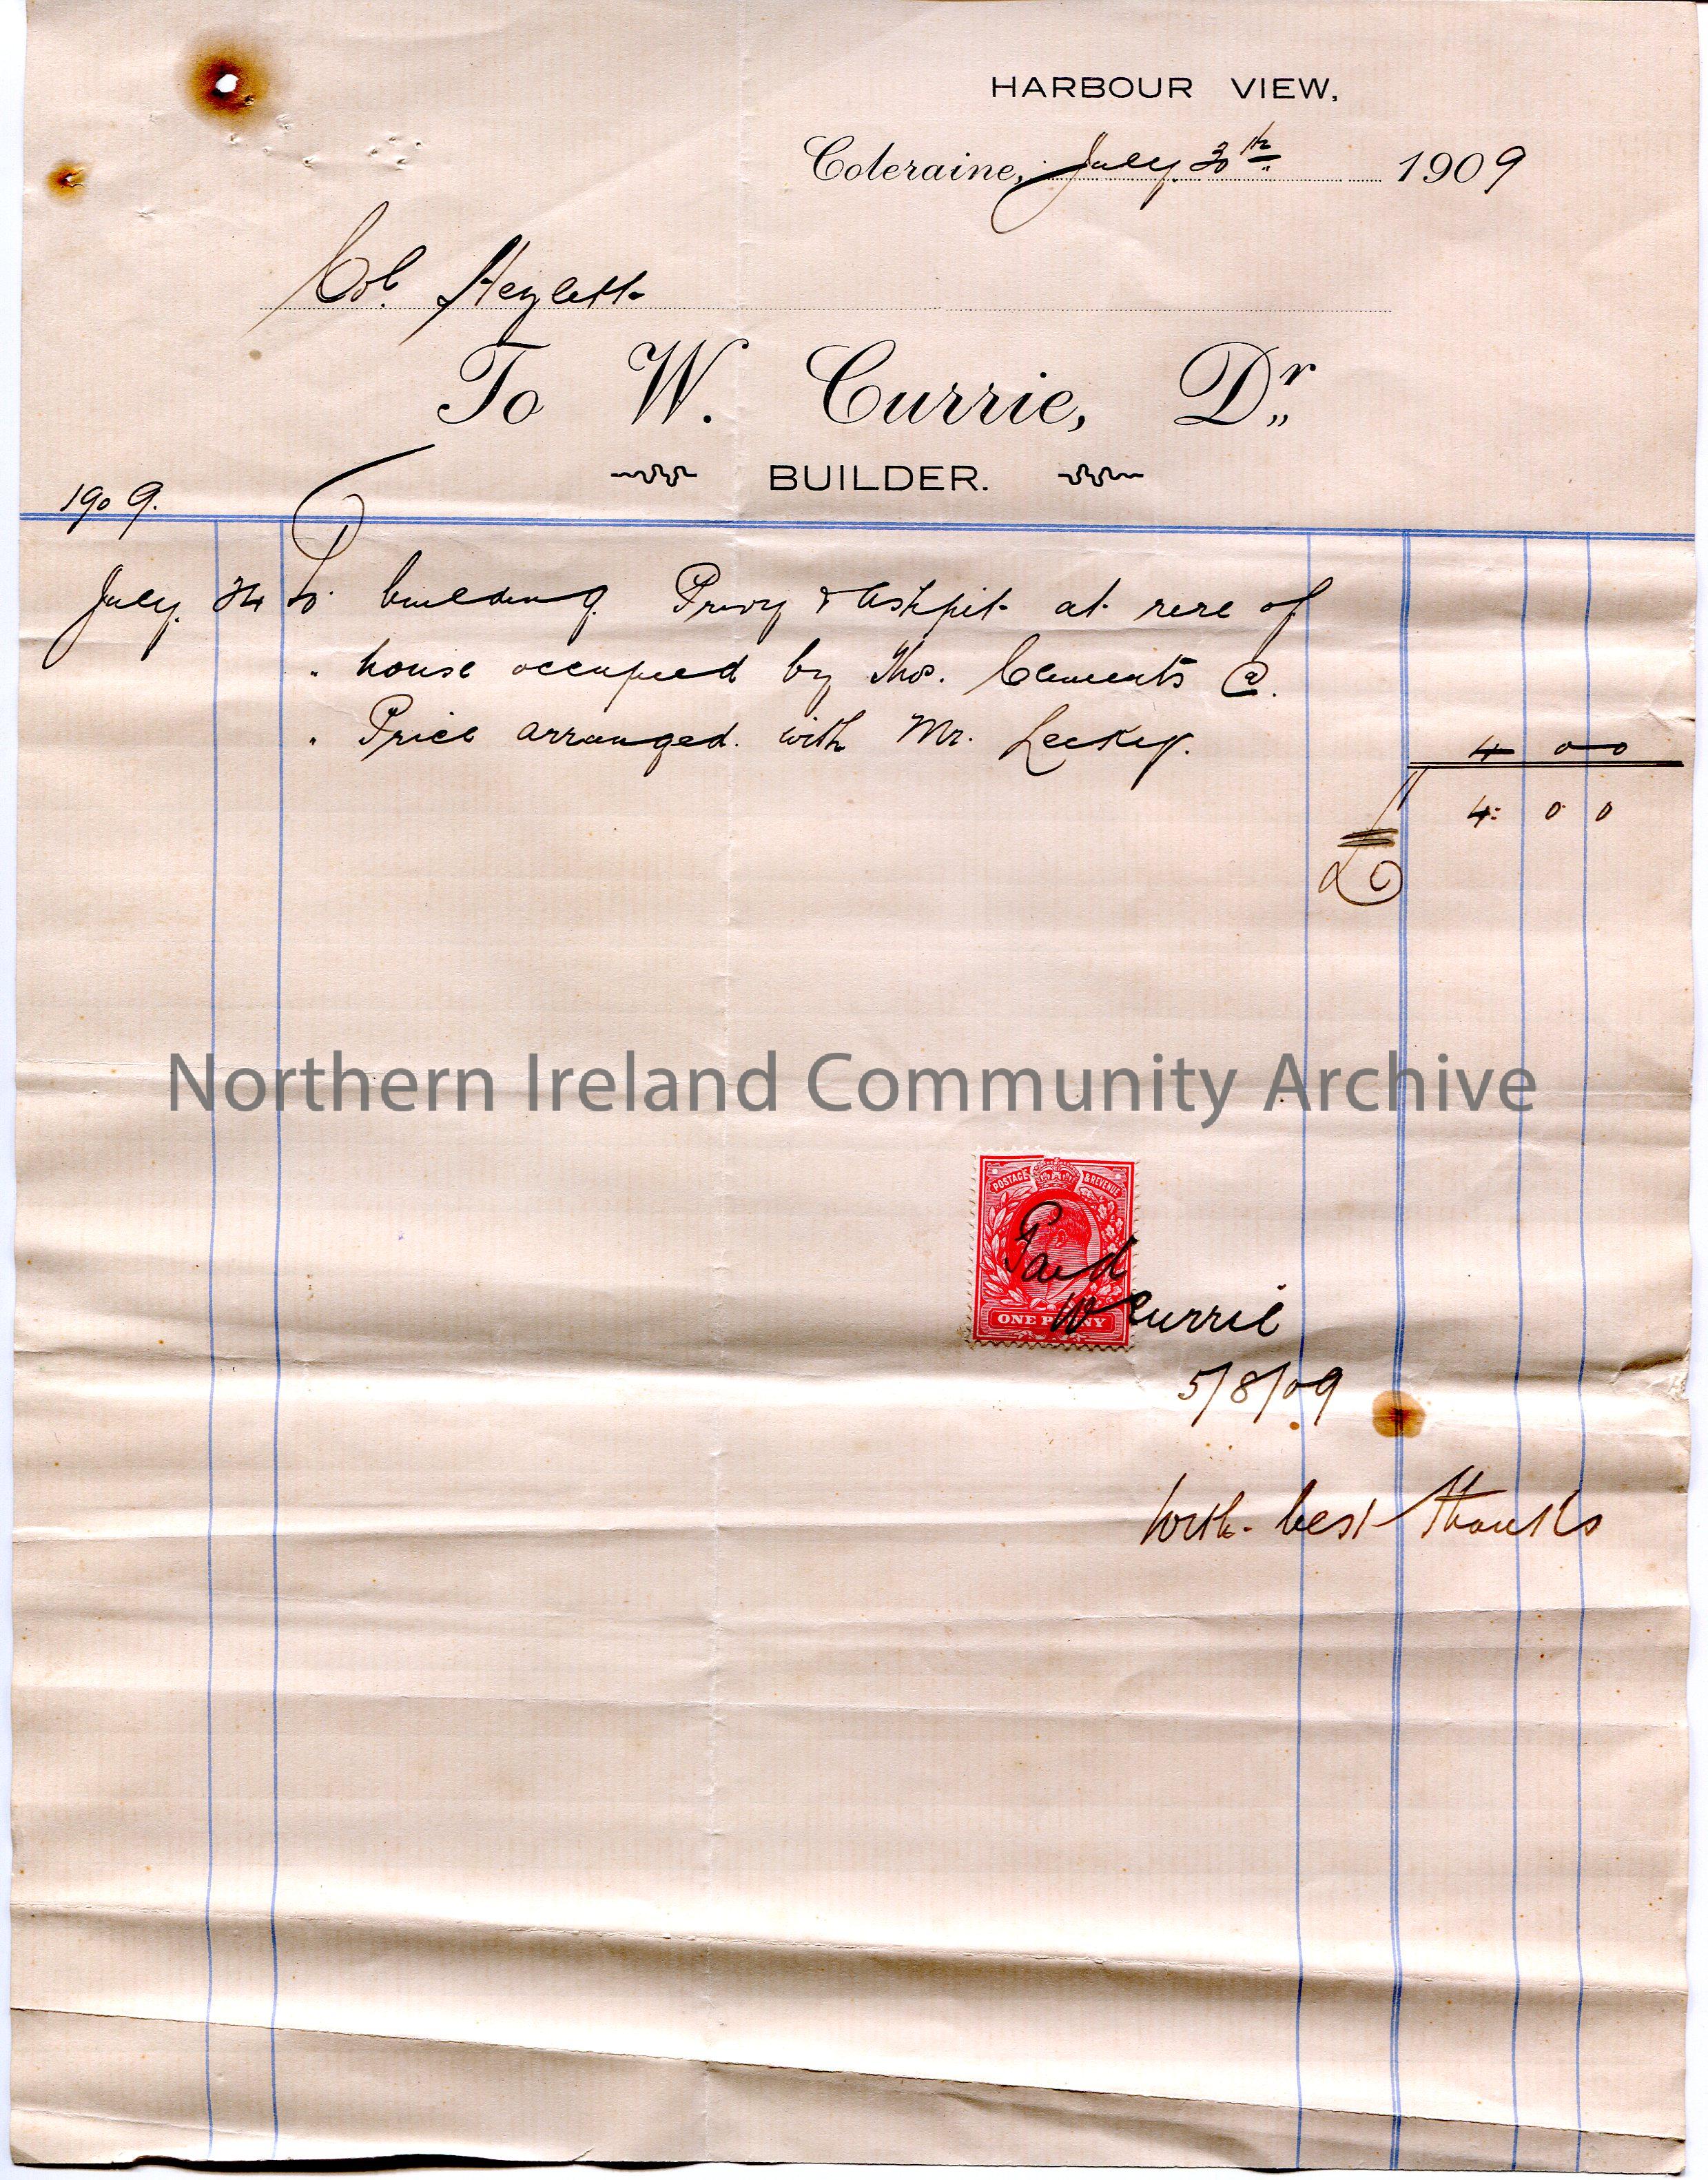 HARBOUR VIEW,
Coleraine, July 30th 1909
Col. Hezlett
To W. Currie, Dr
BUILDER.
1909.
July. 24 To building Privy & Ashpit at rere of
" house occupied by Thos. Clements @.
" Price arranged. with Mr. Leckey. 4 0 0
£ 4: 0 0
Northern Ireland Community Archive
POSTAGE & REVENUE
Paid
ONE PENNY
W Currie
5/8/09
With best thanks